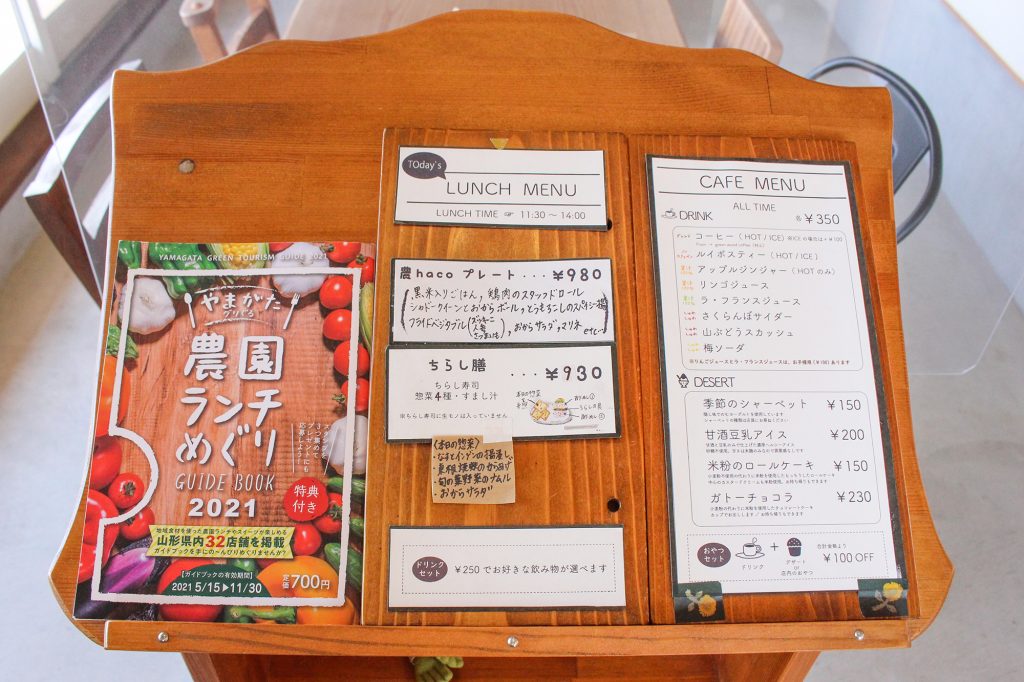 YAMAGATA GREEN TOURISM GUIDE 2021
やまがた
グリぐる
農園
ランチ
めぐり
GUIDE BOOK
2021
スタンプを
3つ集めて
プレゼントにも
応募しよう!
特典
付き
地域食材を使った農園ランチやスイーツが楽しめる
山形県内32店舗を掲載
ガイドブックを手にの〜んびりめぐりませんか?
【ガイドブックの有効期間】
2021 5/15▶11/30
定価700円
TOday's
LUNCH MENU
LUNCH TIME ☞ 11:30 ～ 14:00
農haco プレート・・・¥980
黒米入りごはん, 鶏肉のスタッフドロール
シャドークイーンとおからボール,とうもろこしのスパイシー揚
フライドベジタブル(ズッキーニ
人参
さつまいも), おからサラダ,マリネ
etc…
ちらし膳 ・・・¥930
ちらし寿司
惣菜4種・すまし汁
※ちらし寿司に生モノは入っていません
〈本日の惣菜〉
・なすとインゲンの揚浸し
・車麩のから揚げ
・旬の葉野菜のナムル
・おからサラダ
ドリンク
セット
¥250でお好きな飲み物が選べます
CAFE MENU
ALL TIME
DRINK
各 ¥350
コーヒー(HOT / ICE) ※ICEの場合は+¥100
ルイボスティー(HOT / ICE)
アップルジンジャー(HOTのみ)
リンゴジュース
ラ・フランスジュース
さくらんぼサイダー
山ぶどうスカッシュ
梅ソーダ
※りんごジュースとラ・フランスジュースは、お子様用(¥100)あります
DESERT
季節のシャーベット ¥150
シャーベットの種類は店員にお尋ね下さい
甘酒豆乳アイス ¥200
米粉のロールケーキ ¥150
ガトーショコラ ¥230
小麦粉の代わりに米粉を使用したチョコレートケーキ
カップでお出しします / お持ち帰りもできます
おやつ
セット
+
ドリンク
デザート
or
店内のおやつ
合計金額より
¥100 OFF